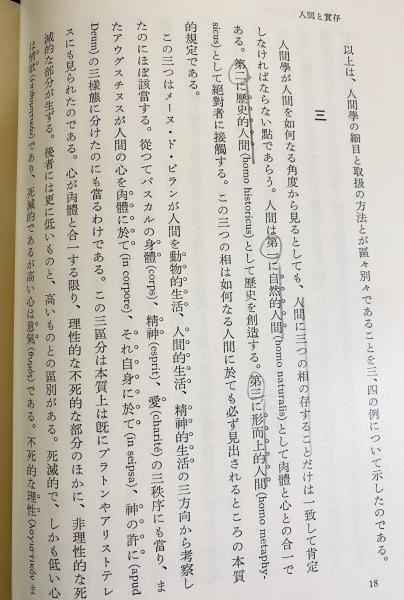 人間と實存
18
以上は、人間學の細目と取扱の方法とが區々別々であることを三、四の例について示したのである。
三
人間學が人間を如何なる角度から見るとしても、人間に三つの相の存することだけは一致して肯定
しなければならない點であらう。人間は第一に自然的人間(homo naturalis)として肉體と心との合一で
ある。第二に歷史的人間(homo historicus)として歷史を創造する。第三に形而上的人間(homo metaphy-
sicus)として絕對者に接觸する。この三つの相は如何なる人間に於ても必ず見出されるところの本質
的規定である。
この三つはメーヌ・ド・ビランが人間を動物的生活、人間的生活、精神的生活の三方向から考察し
たのにほぼ該當する。從つてパスカルの身體(corps)、精神(esprit)、愛(charité)の三秩序にも當り、ま
たアウグスチヌスが人間の心を肉體に於て(in corpore)、それ自身に於て(in seipsa)、神の許に(apud
Deum)の三樣態に分けたのにも當るわけである。この三區分は本質上は既にプラトンやアリストテレ
スにも見られたのである。心が肉體と合一する限り、理性的な不死的な部分のほかに、非理性的な死
滅的な部分が生ずる。後者には更に低いものと、高いものとの區別がある。死滅的で、しかも低い心
は情欲(ἐπιθυμητικόν)であり、死滅的であるが高い心は意氣(θυμός)である。不死的な理性(λογιστικόν ま